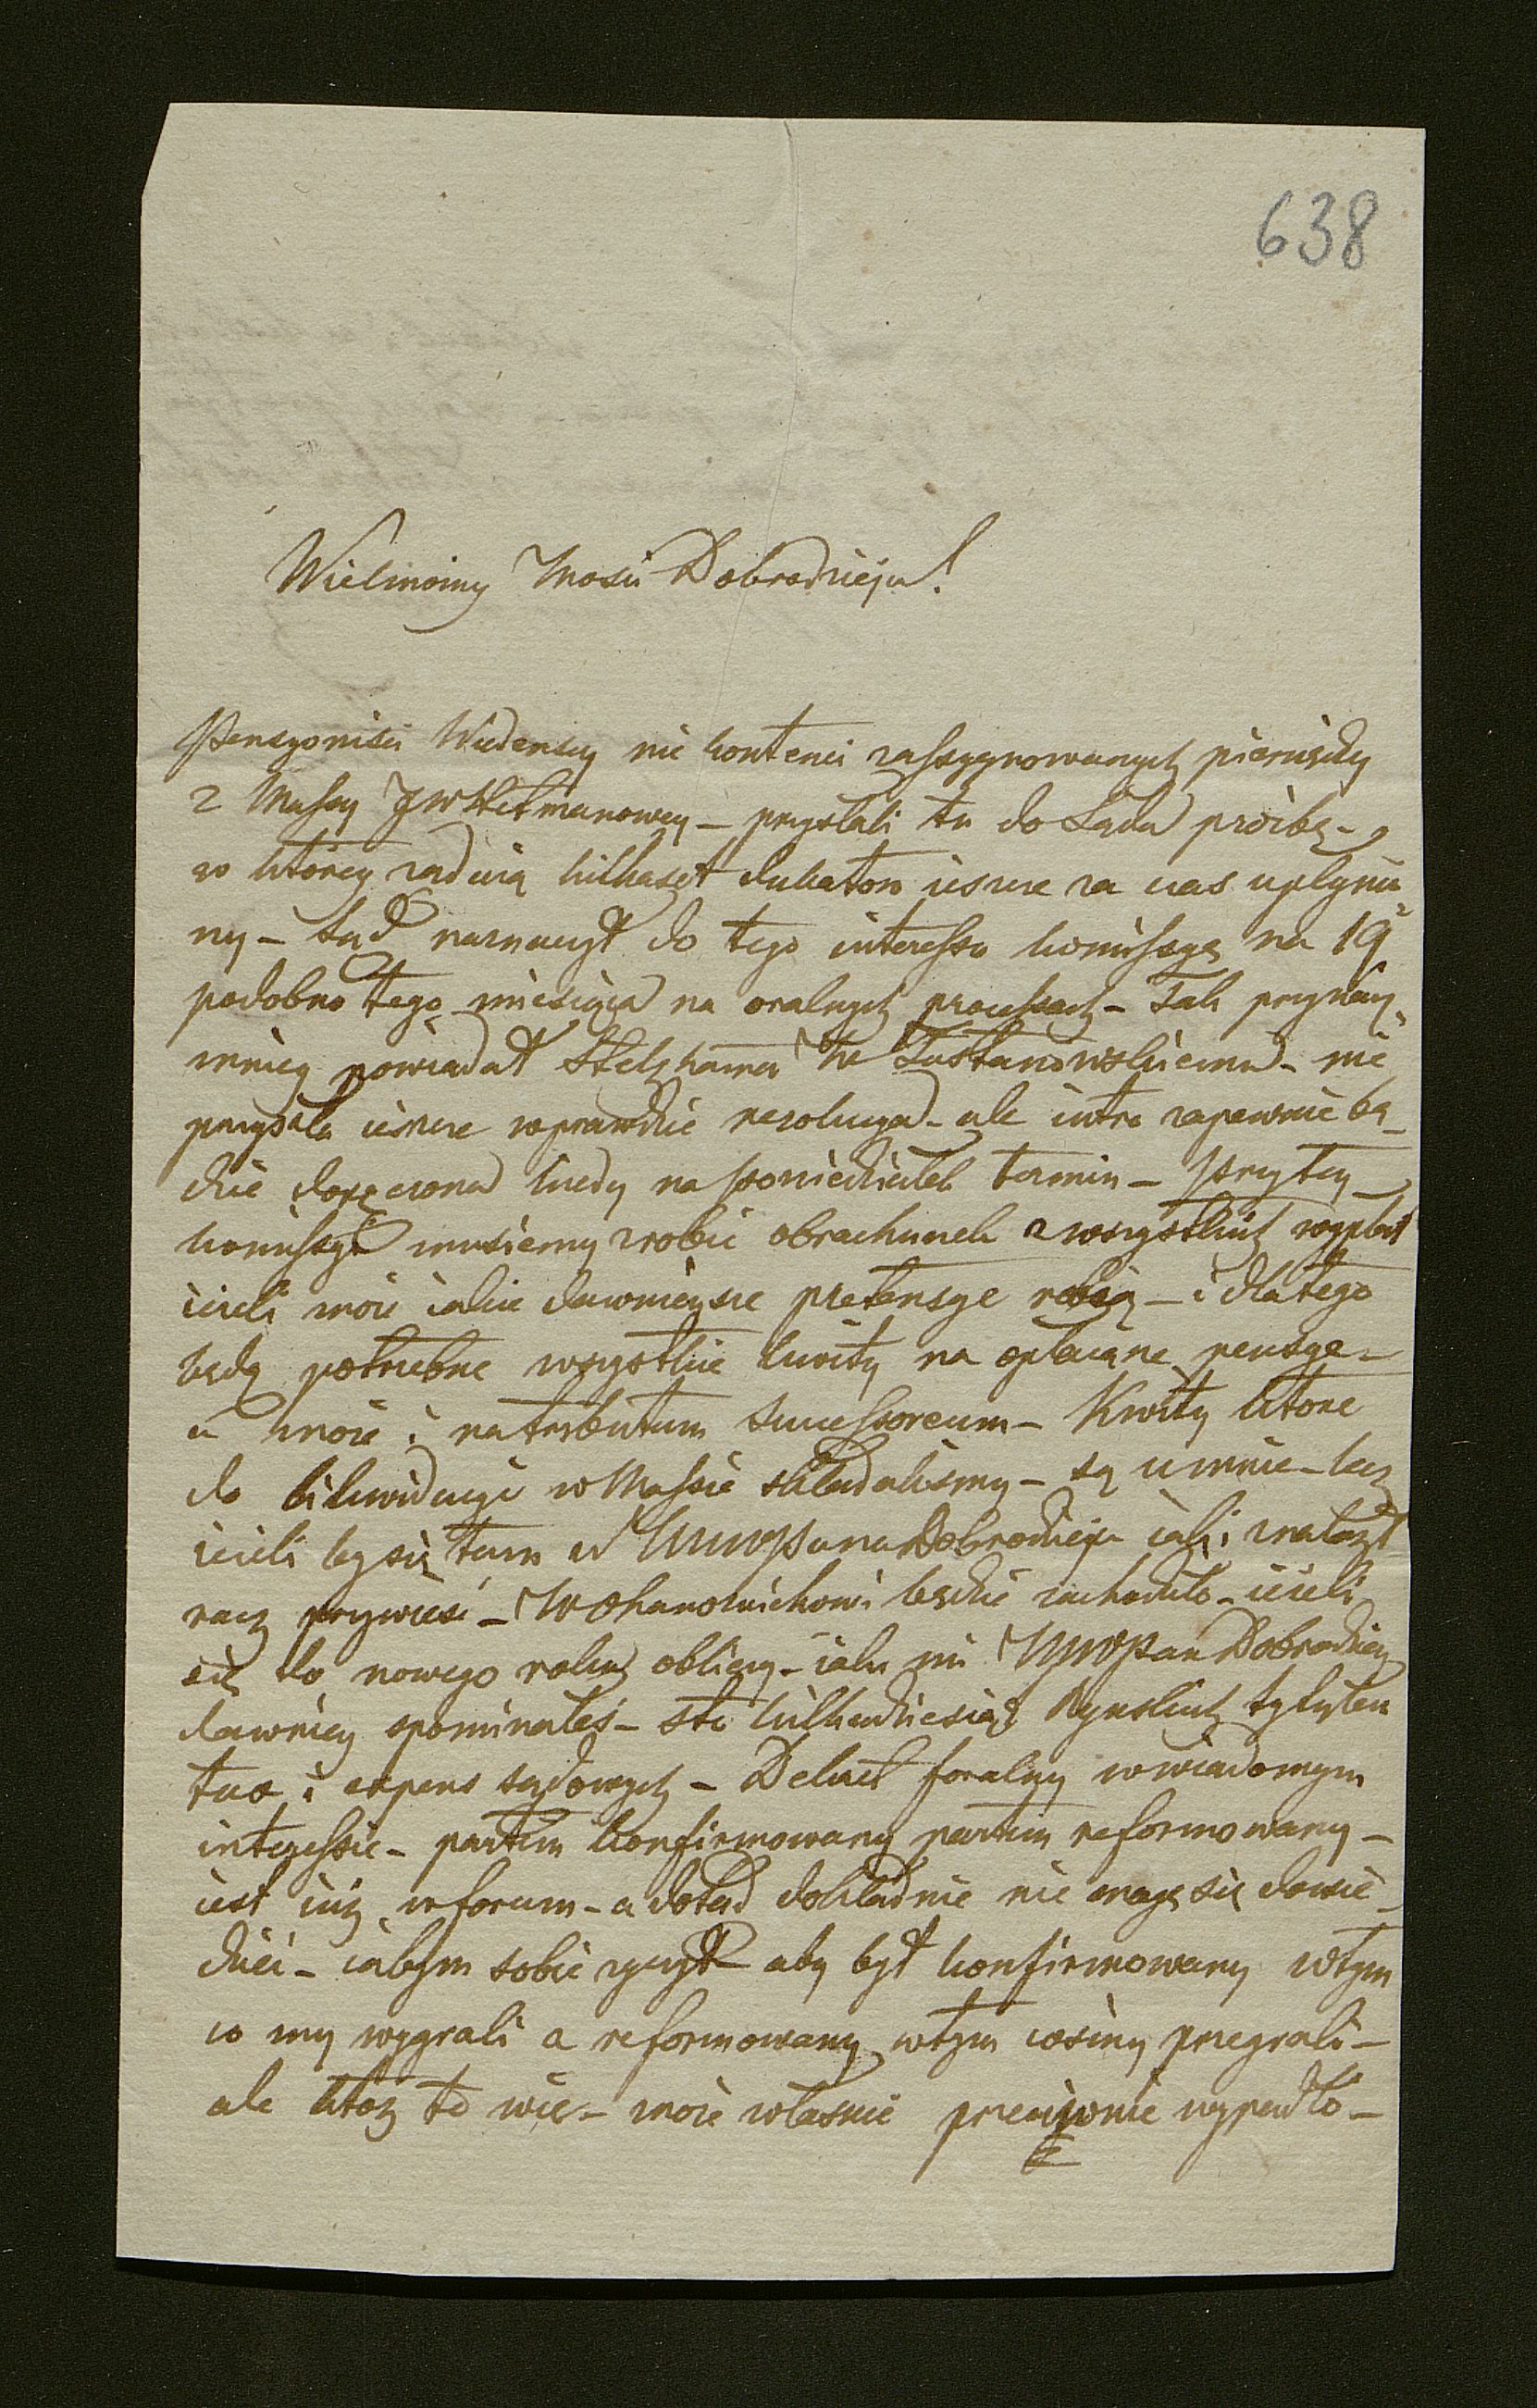 638
Wielmożny Mości Dobrodzieju!
Pensyonisci Wiedenscy nie kontenci zassygnowanych pieniędzy
z Massy JW Hetmanowey – przysłali tu do Sądu prośbę –
w którey żądaią kilkaset dukatow ieszcze za czas upłynio
ny – Sąd naznaczył do tego interessu komissyę na 19
podobno tego miesiąca na oralnych processach – Tak przynay
mniey powiadał Stelzhamer Tustanowskiemu – nie
przyszła ieszcze wprawdzie rezolucya – ale iutro zapewnie bę
dzie doręczona kiedy na poniedziałek termin – Przy tey
komissyi musiemy zrobić obrachunek z wszystkich wypłat
ieżeli może iakie dawnieysze pretensye robią – i dla tego
będą potrzebne wszystkie kwity na opłacane pensye –
a może i na tributum successoreum – Kwity które
do likwidacyi w Massie składalismy – są u mnie – lecz
ieżeli by się tam u WMWPana Dobrodzieja iaki znalazł
racz przywieść – Wohanowichowi będzie zachodziło – ieżeli
się do nowego roku obliczy – iak mi WMWPan Dobrodziey
dawniey spominałeś – sto kilkadziesiąt Rynskich tytułem
tax i expens sądowych – Dekret foralny w wiadomym
interessie – partim konfirmowany partim reformowany –
iest iuż w forum – a dotąd dokładnie nie mogę się dowie
dzieć – iabym sobie życzył aby był konfirmowany w tym
co my wygrali a reformowany w tym cośmy przegrali –
ale któż to wie – może własnie przeciwnie wypadło –